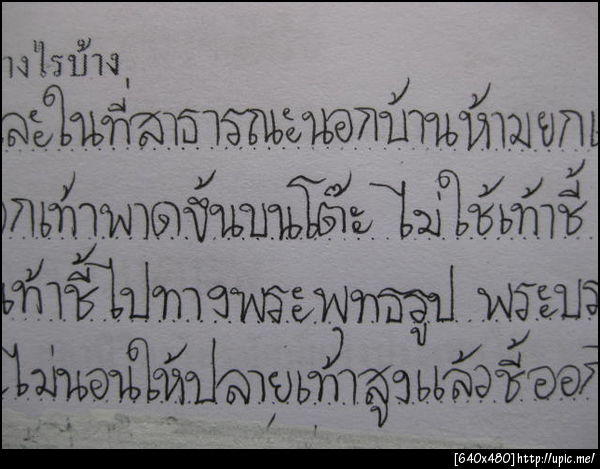 างไรบ้าง
ละในที่สาธารณะนอกบ้านห้ามยกเ
กเท้าพาดขึ้นบนโต๊ะ ไม่ใช้เท้าชี้
เท้าชี้ไปทางพระพุทธรูป พระบร
ะไม่นอนให้ปลายเท้าสูงแล้วชี้ออก
[640x480]http://upic.me/